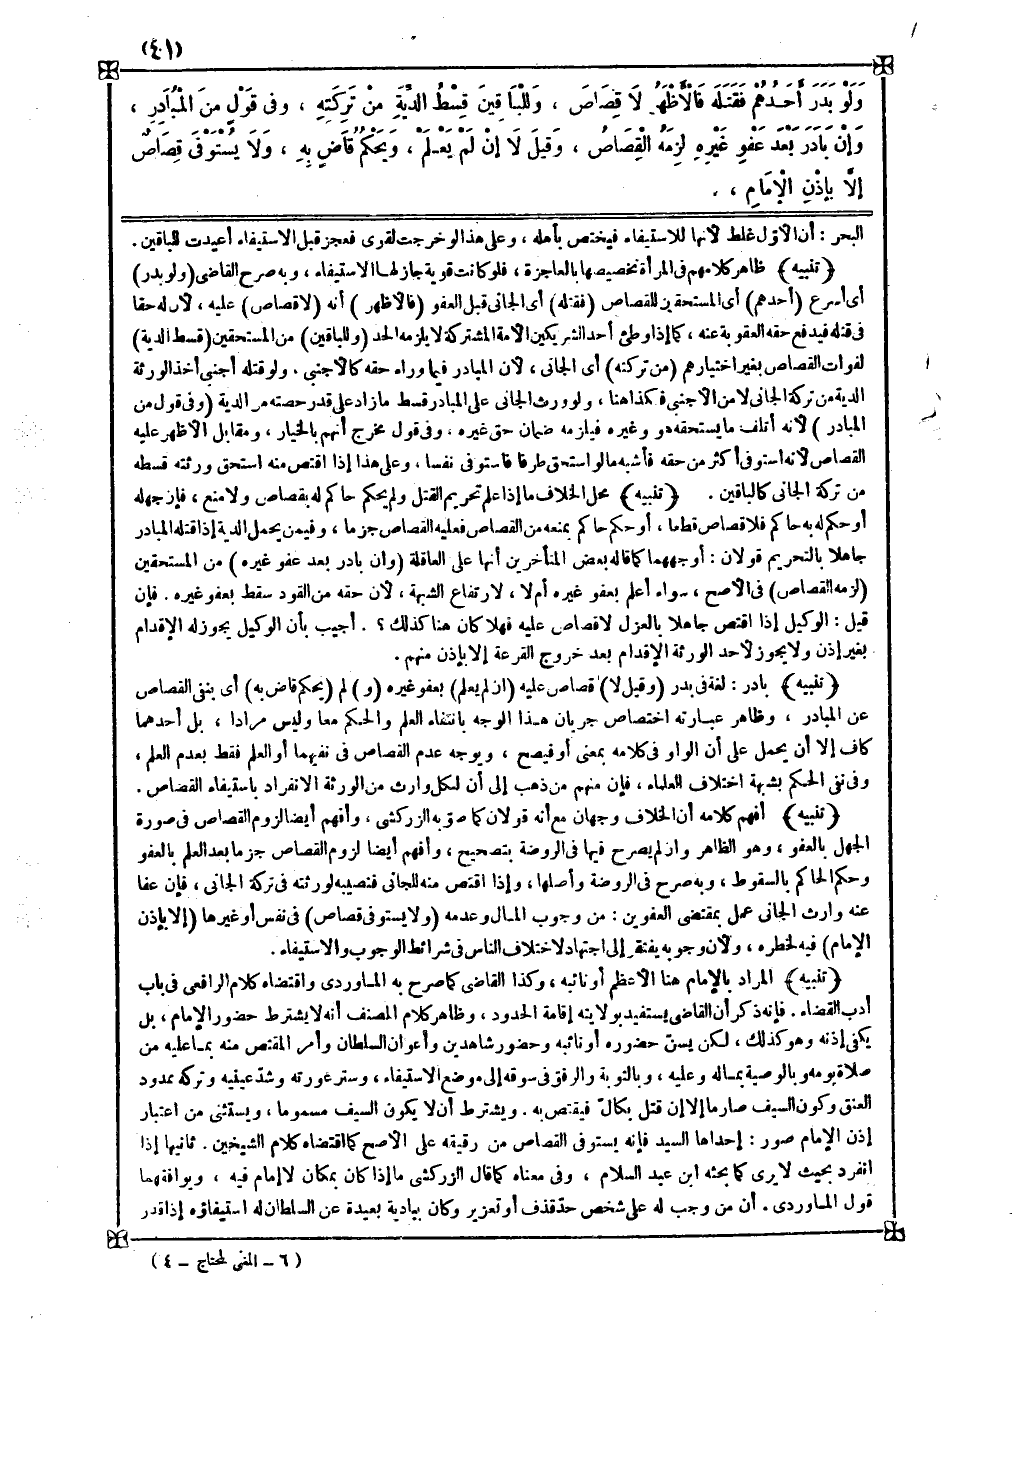 (٤٠١)
وَلَوْ بَدَرَ أَحَدُهُمْ فَقَتَلَهُ فَالْأَظْهَرُ لَا قِصَاصَ ، وَلِلْبَاقِينَ قِسْطُ الدِّيَةِ مِنْ تَرِكَتِهِ ، وفى قَوْلٍ مِنَ المُبَادِرِ ،
وَإِنْ بَادَرَ بَعْدَ عَفْوِ غَيْرِهِ لَزِمَهُ الْقِصَاصُ ، وَقِيلَ لَا إِنْ لَمْ يَعْلَمْ ، وَيَحْكُمْ قَاضٍ بِهِ ، وَلَا يُسْتَوْفَى قِصَاصٌ
إِلَّا بِإِذْنِ الْإِمَامِ ، .
البحر : أن الأوّل غلط لأنها للاستيفاء فيختص بأهله ، وعلى هذا لو خرجت لقوى فعجز قبل الاستيفاء أعيدت للباقين .
﴿ تنبيه ﴾ ظاهر كلامهم فى المرأة تخصيصها بالعاجزة ، فلو كانت قوية جاز لها الاستيفاء ، وبه صرح القاضى (ولو بدر)
أى أسرع (أحدهم) أى المستحقين للقصاص (فقتله) أى الجانى قبل العفو (فالأظهر) أنه (لا قصاص) عليه ، لأن له حقا
فى قتله فيدفع حقه العقوبة عنه ، كما إذا وطئ أحد الشريكين الأمة المشتركة لا يلزمه الحد (وللباقين) من المستحقين (قسط الدية)
لفوات القصاص بغير اختيارهم (من تركته) أى الجانى ، لأن المبادر فيما وراء حقه كالأجنبى . ولو قتله أجنبى أخذ الورثة
الدية من تركة الجانى لا من الأجنبى فكذا هنا ، ولو ورث الجانى على المبادر قسط ما زاد على قدر حصته من الدية (وفى قول من
المبادر ) لأنه أتلف ما يستحقه هو وغيره فيلزمه ضمان حق غيره ، وفى قول مخرج أنهم بالخيار ، ومقابل الأظهر عليه
القصاص لأنه استوفى أكثر من حقه فأشبه ما لو استحق طرفا فاستوفى نفسا ، وعلى هذا إذا اقتص منه استحق ورثته قسطه
من تركة الجانى كالباقين . ﴿ تنبيه ﴾ محل الخلاف ما إذا علم تحريم القتل ولم يحكم حاكم له بقصاص ولا منع ، فإن جهله
أو حكم له به حاكم فلا قصاص قطعا ، أو حكم حاكم بمنعه من القصاص فعليه القصاص جزما ، وفيمن يحمل الدية إذا قتله المبادر
جاهلا بالتحريم قولان : أوجههما كما قاله بعض المتأخرين أنها على العاقلة (وأن بادر بعد عفو غيره ) من المستحقين
(لزمه القصاص) فى الأصح ، سواء أعلم بعفو غيره أم لا ، لارتفاع الشبهة ، لأن حقه من القود سقط بعفو غيره . فإن
قيل : الوكيل إذا اقتص جاهلا بالعزل لا قصاص عليه فهلا كان هنا كذلك ؟ . أجيب بأن الوكيل يجوز له الإقدام
بغير إذن ولا يجوز لأحد الورثة الإقدام بعد خروج القرعة إلا بإذن منهم .
﴿ تنبيه ﴾ بادر : لغة فى بدر (وقيل لا) قصاص عليه (إن لم يعلم) بعفو غيره (و ) لم (يحكم قاض به) أى بنفى القصاص
عن المبادر ، وظاهر عبارته اختصاص جريان هذا الوجه بانتفاء العلم والحكم معا وليس مرادا ، بل أحدهما
كاف إلا أن يحمل على أن الواو فى كلامه بمعنى أو فيصح ، ويوجه عدم القصاص فى نفيهما أو العلم فقط بعدم العلم ،
وفى نفى الحكم بشبهة اختلاف العلماء ، فإن منهم من ذهب إلى أن لكل وارث من الورثة الانفراد باستيفاء القصاص .
﴿ تنبيه ﴾ أفهم كلامه أن الخلاف وجهان مع أنه قولان كما صوّبه الزركشى ، وأفهم أيضا لزوم القصاص فى صورة
الجهل بالعفو ، وهو الظاهر وإن لم يصرح فيها فى الروضة بتصحيح ، وأفهم أيضا لزوم القصاص جزما بعد العلم بالعفو
وحكم الحاكم بالسقوط ، وبه صرح فى الروضة وأصلها ، وإذا اقتص منه للجانى فنصيبه لورثته فى تركة الجانى ، فإن عفا
عنه وارث الجانى عمل بمقتضى العفوين : من وجوب المال وعدمه (ولا يستوفى قصاص) فى نفس أو غيرها (إلا بإذن
الإمام) فيه لخطره ، ولأن وجوبه يفتقر إلى اجتهاد لاختلاف الناس فى شرائط الوجوب والاستيفاء .
﴿ تنبيه ﴾ المراد بالإمام هنا الأعظم أو نائبه ، وكذا القاضى كما صرح به الماوردى واقتضاه كلام الرافعى فى باب
أدب القضاء . فإنه ذكر أن القاضى يستفيد بولايته إقامة الحدود ، وظاهر كلام المصنف أنه لا يشترط حضور الإمام ، بل
يكفى إذنه وهو كذلك ، لكن يسنّ حضوره أو نائبه وحضور شاهدين وأعوان السلطان وأمر المقتص منه بما عليه من
صلاة يومه وبالوصية بماله وعليه ، وبالتوبة والرفق فى سوقه إلى موضع الاستيفاء ، وستر عورته وشدّ عينيه وتركه ممدود
العنق وكون السيف صارما إلا إن قتل بكالّ فيقتص به . ويشترط أن لا يكون السيف مسموما ، ويستثنى من اعتبار
إذن الإمام صور : إحداها السيد فإنه يستوفى القصاص من رقيقه على الأصح كما اقتضاه كلام الشيخين . ثانيها إذا
انفرد بحيث لا يرى كما بحثه ابن عبد السلام ، وفى معناه كما قال الزركشى ما إذا كان بمكان لا إمام فيه ، ويوافقهما
قول الماوردى . أن من وجب له على شخص حدّ قذف أو تعزير وكان ببادية بعيدة عن السلطان له استيفاؤه إذا قدر
( ٦ – المغنى لمحتاج – ٤ )